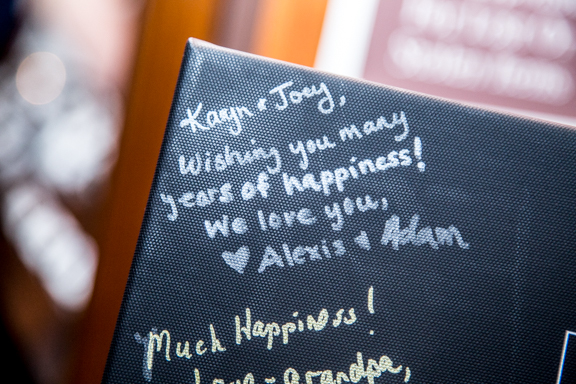 Karyn & Joey,
Wishing you many
years of happiness!
We love you,
♡ Alexis & Adam
Much Happiness!
Love - Grandpa,